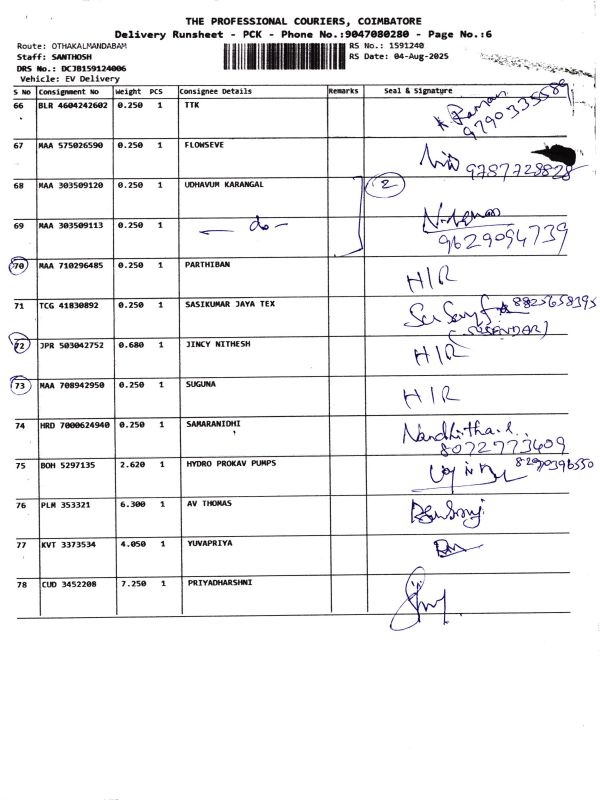 THE PROFESSIONAL COURIERS, COIMBATORE
Delivery Runsheet - PCK - Phone No.:9047080280 - Page No.:6
Route: OTHAKALMANDABAM RS No.: 1591240
Staff: SANTHOSH RS Date: 04-Aug-2025
DRS No.: DCJB159124006
Vehicle: EV Delivery
S No Consignment No Weight PCS Consignee Details Remarks Seal & Signature
66 BLR 4604242602 0.250 1 TTK Raman 9790335589
67 MAA 575026590 0.250 1 FLOWSEVE 9787728828
68 MAA 303509120 0.250 1 UDHAVUM KARANGAL 2
69 MAA 303509113 0.250 1 - do - 9629094739
70 MAA 710296485 0.250 1 PARTHIBAN H/R
71 TCG 41830892 0.250 1 SASIKUMAR JAYA TEX 8825658395
72 JPR 503042752 0.680 1 JINCY NITHESH H/R
73 MAA 708942950 0.250 1 SUGUNA H/R
74 HRD 7000624940 0.250 1 SAMARANIDHI 8072773409
75 BOM 5297135 2.620 1 HYDRO PROKAV PUMPS 8290396550
76 PLM 353321 6.300 1 AV THOMAS
77 KVT 3373534 4.050 1 YUVAPRIYA
78 CUD 3452208 7.250 1 PRIYADHARSHNI